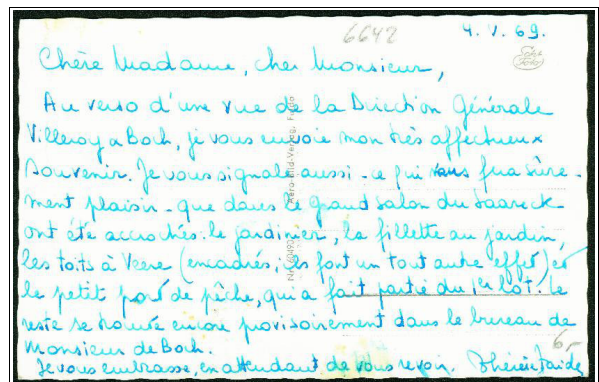 6642
4. V. 69.
Chère Madame, cher Monsieur,
Au verso d'une vue de la Direction Générale
Villeroy & Boch, je vous envoie mon très affectueux
souvenir. Je vous signale aussi - ce qui vous fera sûre-
ment plaisir - que dans le grand salon du Saareck
ont été accrochés: le jardinier, la fillette au jardin,
les toits à Veere (encadrés, ils font un tout autre effet) et
le petit port de pêche, qui a fait partie du 1er lot. Le
reste se trouve encore provisoirement dans le bureau de
Monsieur de Boch.
Je vous embrasse, en attendant de vous revoir.
6,-
Aero-Bild-Verlag, Fulda